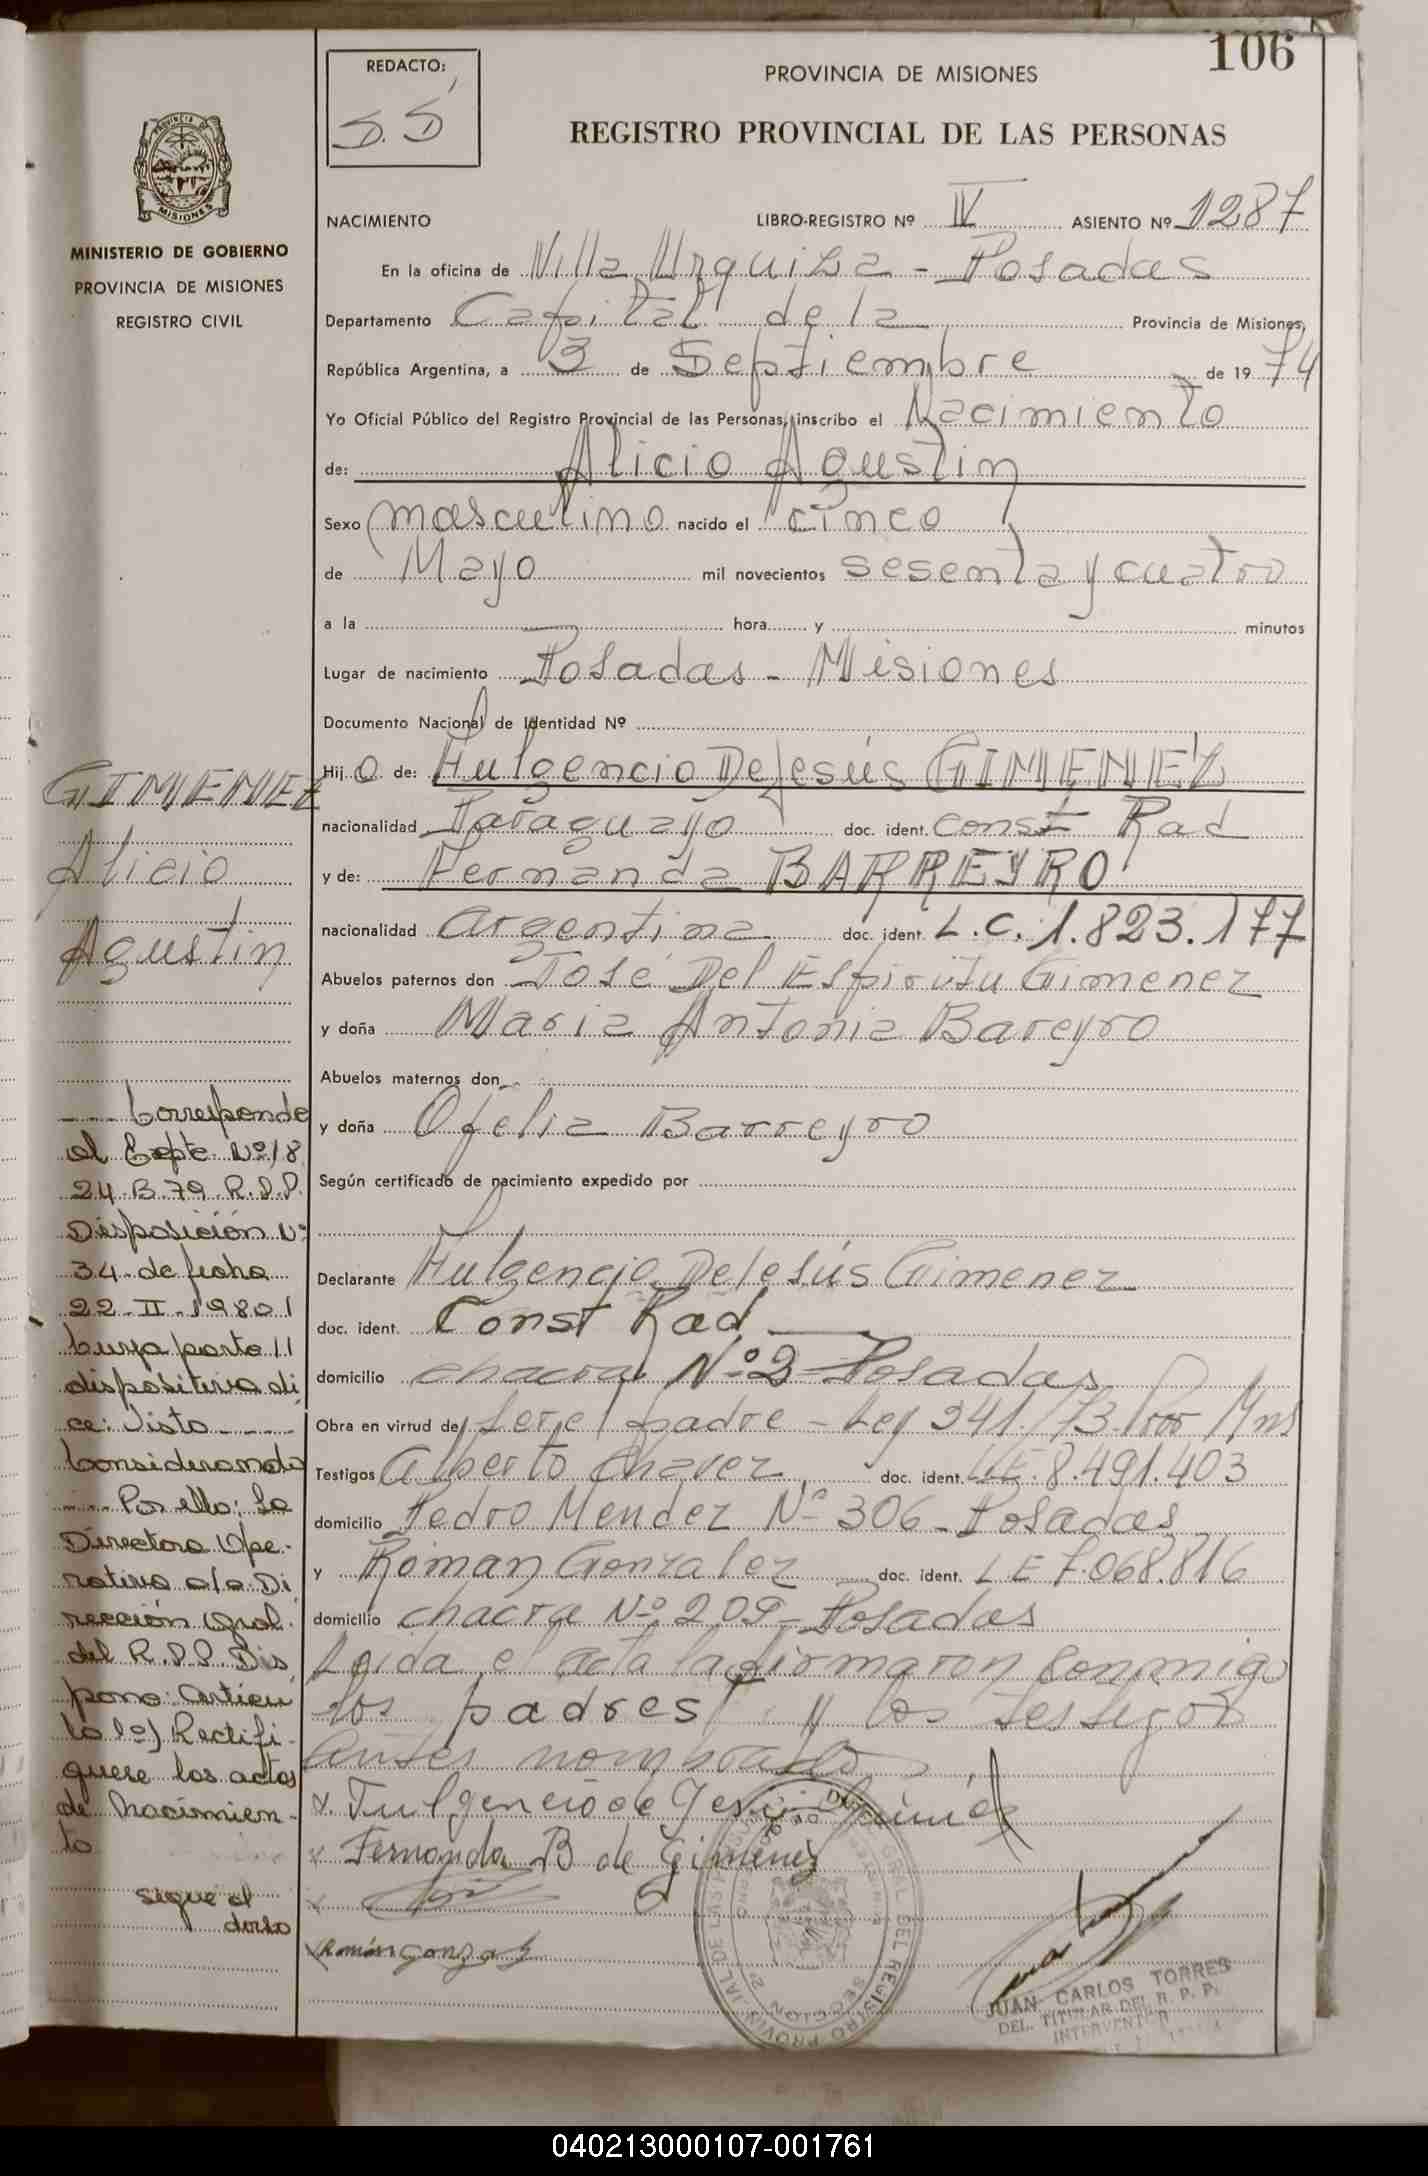 106
REDACTO:
S.S
PROVINCIA DE MISIONES
REGISTRO PROVINCIAL DE LAS PERSONAS
PROVINCIA DE
MISIONES
MINISTERIO DE GOBIERNO
PROVINCIA DE MISIONES
REGISTRO CIVIL
NACIMIENTO LIBRO-REGISTRO Nº IV ASIENTO Nº 1287
En la oficina de Villa Urquiza - Posadas
Departamento Capital de la Provincia de Misiones,
República Argentina, a 3 de Septiembre de 19 74
Yo Oficial Público del Registro Provincial de las Personas, inscribo el Nacimiento
de: Alicio Agustin
Sexo masculino nacido el cinco
de Mayo mil novecientos sesenta y cuatro
a la hora y minutos
Lugar de nacimiento Posadas - Misiones
Documento Nacional de Identidad Nº
Hij o de: Fulgencio DeJesús GIMENEZ
nacionalidad Paraguayo doc. ident. const Rad
y de: Fernanda BARREYRO
nacionalidad Argentina doc. ident. L.C. 1.823.177
Abuelos paternos don José Del Espiritu Gimenez
y doña Maria Antonia Bareyro
Abuelos maternos don
y doña Ofelia Barreyro
Según certificado de nacimiento expedido por
Declarante Fulgencio DeJesús Gimenez
doc. ident. Const Rad
domicilio chacra Nº 2 - Posadas
Obra en virtud de ser el padre - Ley 241/73. Mns
Testigos Alberto Chavez doc. ident. LE. 8.491.403
domicilio Pedro Mendez Nº 306 - Posadas
y Roman Gonzalez doc. ident. LE 7.068.816
domicilio chacra Nº 209 - Posadas
Leida el acta la firmaron conmigo
los padres y los testigos
antes nombrados
x. Fulgencio de Jesus Gimenez
x Fernanda B de Gimenez
x
x Román Gonzalez
GIMENEZ
Alicio
Agustin
---- Corresponde
al Expte Nº 18
24-B-79 R.P.P.
Disposición Nº
34- de fecha
22-II-1980
Cuya parte
dispositiva di
ce: Visto ----
Considerando
---- Por ello: La
Directora Ope-
rativa a/c Di
rección Gral.
del R.P.P. Dis
pone: Artícu
lo 1º) Rectifi-
quese las actas
de Nacimien-
to
sigue al
dorso
SECCION
JUAN CARLOS TORRES
DEL. TITULAR DEL R. P. P.
INTERVENTOR
040213000107-001761